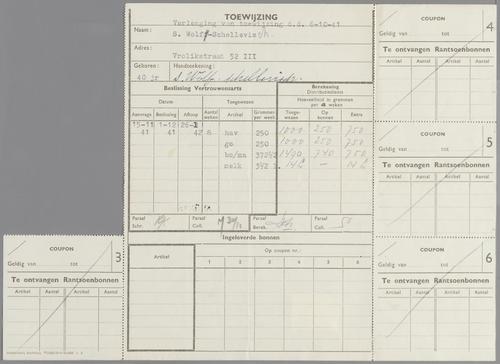 TOEWIJZING
Verlenging van toewijzing d.d. 6-10-41
Naam: S. Wolff-Schellevis
Adres: Vrolikstraat 52 III
Geboren: Handteekening:
40 jr S. Wolff Schellevis
Beslissing Vertrouwensarts
Berekening
Distributiedienst
Datum
Toegewezen
Hoeveelheid in grammen
per 4 weken
Aanvrage Beslissing Afloop Aantal weken Artikel Grammen per week Toegewezen Op bonnen Extra
15-11 1-12 26-1
41 41 42 8 hav 250 1000 250 750
ge 250 1000 250 750
bo/ma 372½ 1490 740 750
melk 3½ 14 L — 14 L
Paraaf Schr.
Paraaf Coll.
Paraaf Berek.
Paraaf Coll.
Ingeleverde bonnen
Artikel
Op coupon nr.
1 2 3 4 5 6
COUPON 3
Geldig van tot
Te ontvangen Rantsoenbonnen
Artikel Aantal Artikel Aantal
COUPON 4
Geldig van tot
Te ontvangen Rantsoenbonnen
Artikel Aantal Artikel Aantal
COUPON 5
Geldig van tot
Te ontvangen Rantsoenbonnen
Artikel Aantal Artikel Aantal
COUPON 6
Geldig van tot
Te ontvangen Rantsoenbonnen
Artikel Aantal Artikel Aantal